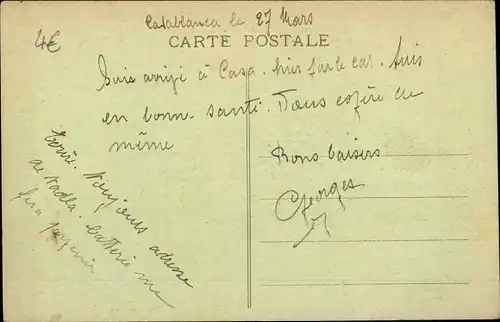 Casablanca le 27 Mars
4€
CARTE POSTALE
Suis arrivé à Casa. hier par le car. Suis
en bonne santé. Vous espère de
même
Bons baisers
Georges
Ecrire. toujours adresse
de Kadla. Batterie me
fera parvenir